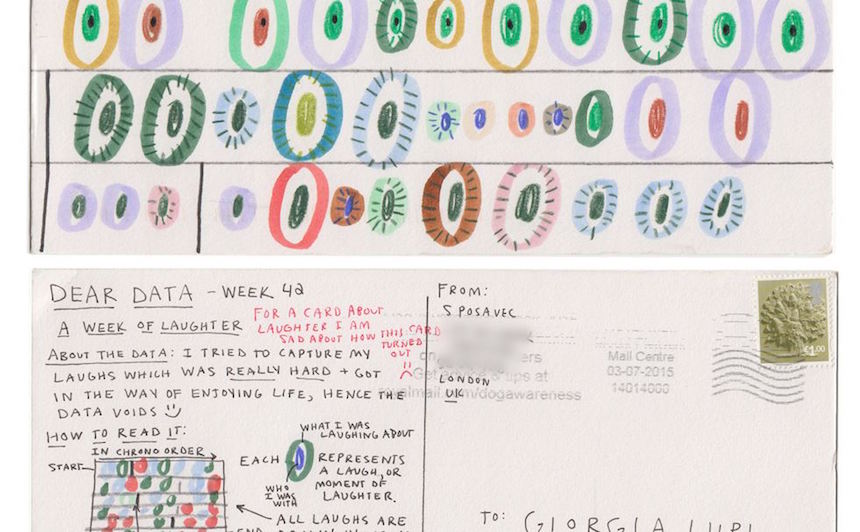 DEAR DATA - WEEK 42
A WEEK OF LAUGHTER
FOR A CARD ABOUT
LAUGHTER I AM
SAD ABOUT HOW THIS CARD
TURNED
OUT
ABOUT THE DATA: I TRIED TO CAPTURE MY
LAUGHS WHICH WAS REALLY HARD + GOT
IN THE WAY OF ENJOYING LIFE, HENCE THE
DATA VOIDS
HOW TO READ IT:
IN CHRONO ORDER
START
WHAT I WAS
LAUGHING ABOUT
EACH REPRESENTS
A LAUGH, OR
MOMENT OF
LAUGHTER.
WHO
I WAS
WITH
ALL LAUGHS ARE
END
FROM:
S POSAVEC
LONDON
UK
tips at
/dogawareness
Mail Centre
03-07-2015
14014000
£1.00
TO: GIORGIA LUPI